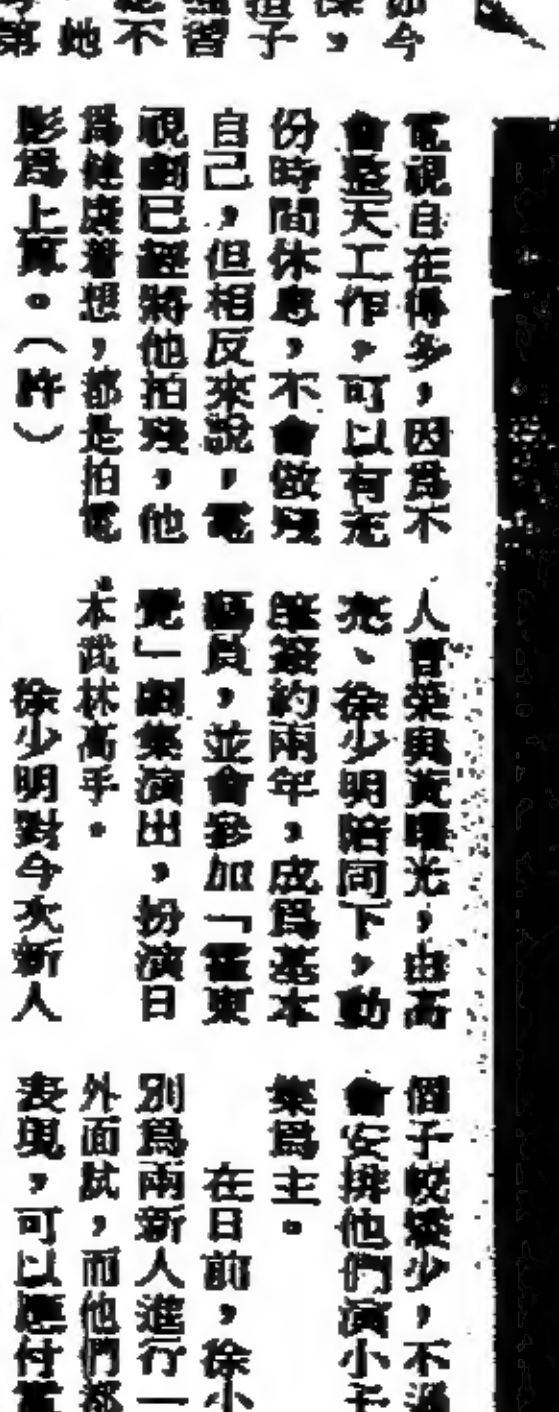 電視自在得多，因爲不
會整天工作，可以有充
份時間休息，不會做殘
自己，但相反來說，電
視劇已經將他拍殘，他
爲健康着想，都是拍電
影爲上算。（許）
人曹榮與黃曙光，由高
亮、徐少明陪同下，動
筆簽約兩年，成爲基本
藝員，並會參加「霍東
覺」劇集演出，扮演日
本武林高手。
徐少明對今次新人
個子較矮少，不過
會安排他們演小子
集爲主。
在日前，徐小
別爲兩新人進行一
外面試，而他們都
表現，可以應付電